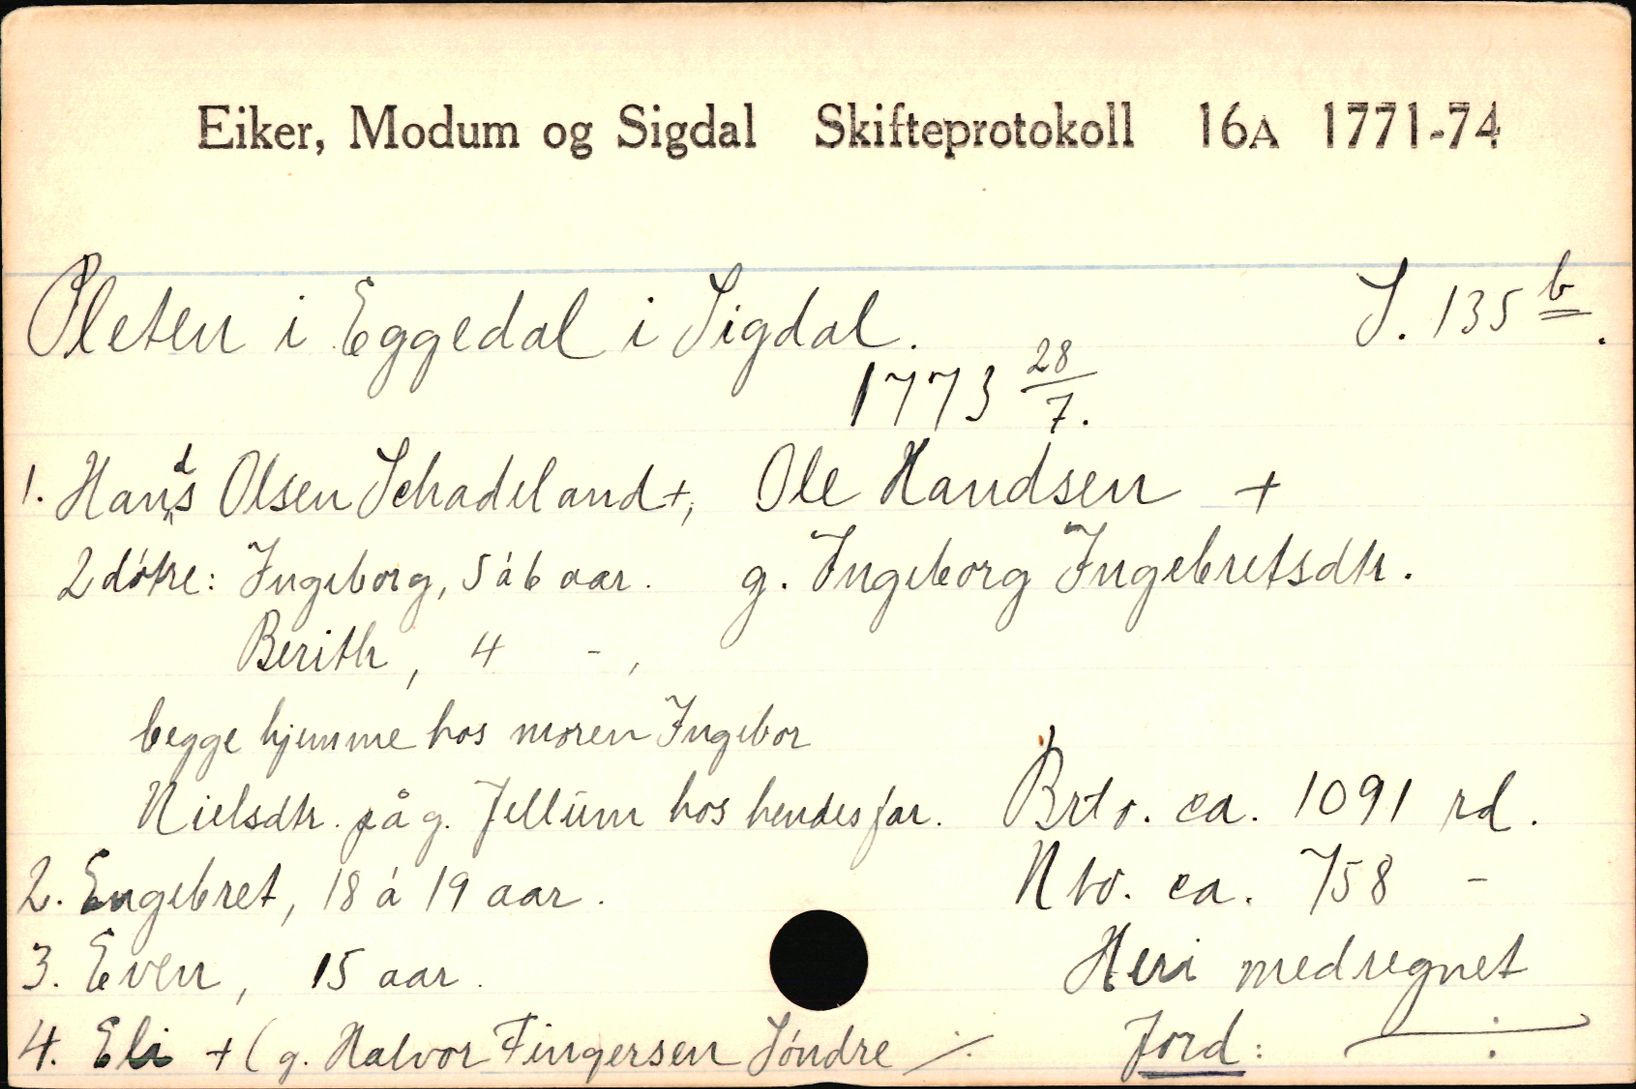 Eiker, Modum og Sigdal Skifteprotokoll 16A 1771-74
Pleten i Eggedal i Sigdal. S. 135 b.
1773 28/7.
1. Hands Olsen Schadeland +, Ole Handsen +
2 døtre: Ingeborg, 5 á 6 aar. g. Ingeborg Ingebretsdtr.
Berith, 4 - ,
begge hjemme hos moren Ingebor
Nielsdtr. på g. Jellum hos hendes far. Brto. ca. 1091 rd.
2. Engebret, 18 á 19 aar. Nto. ca. 758 -
3. Even, 15 aar. Heri medregnet
4. Eli + (g. Halvor Fingersen Søndre ./. Jord: